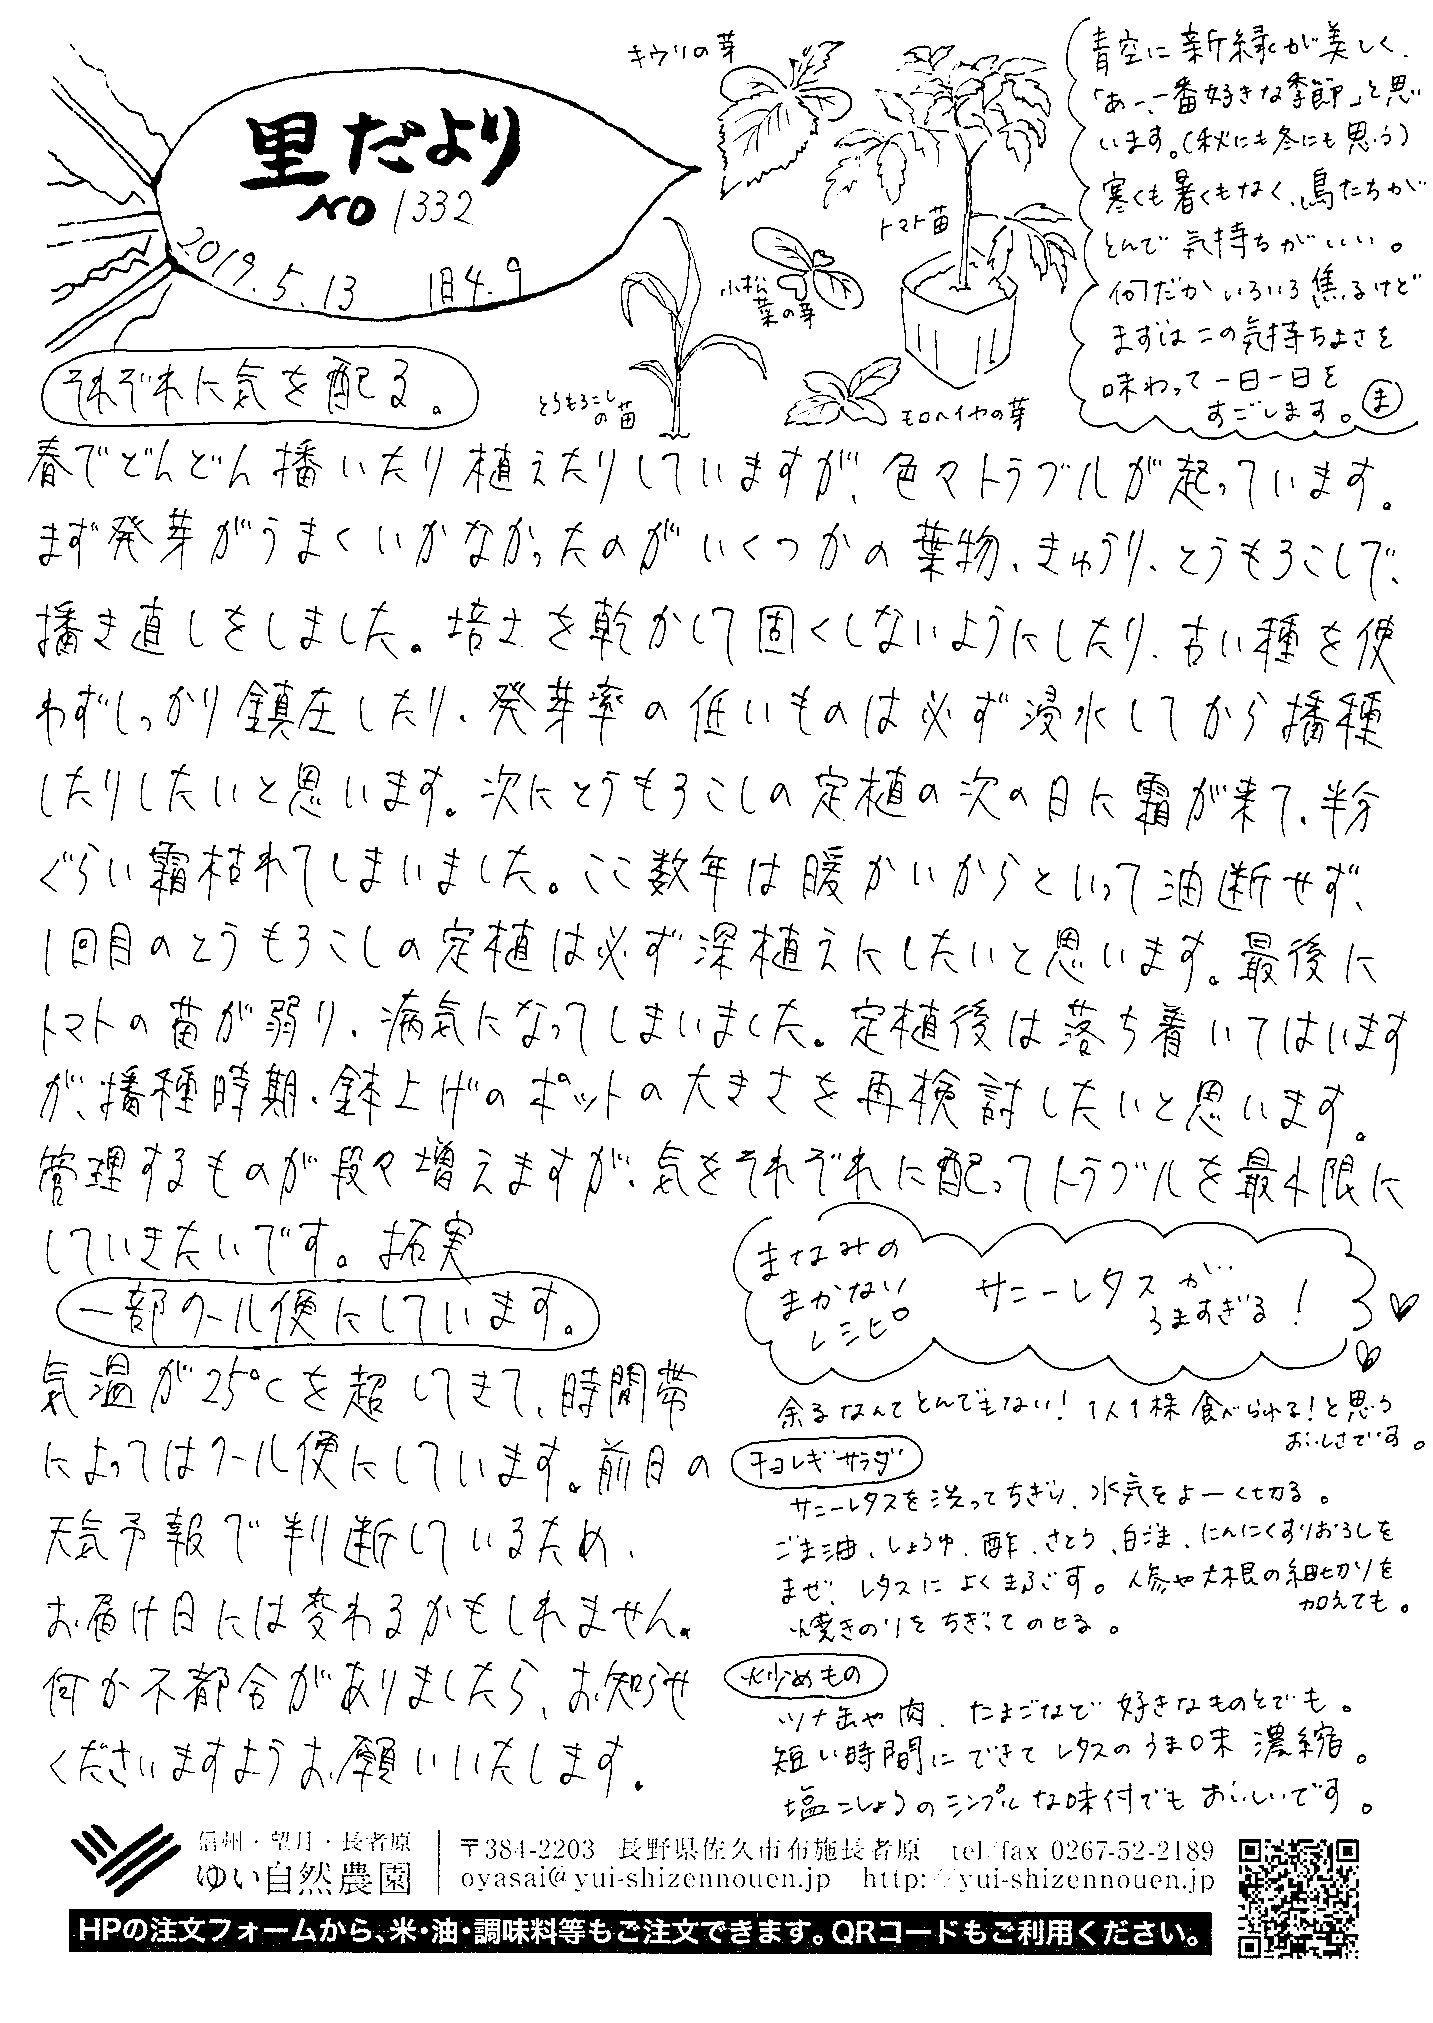 里だより
NO 1332
2019.5.13 旧4.9
キウリの芽
トマト苗
小松菜の芽
とうもろこしの苗
モロヘイヤの芽
青空に新緑が美しく、
「あー、一番好きな季節」と思
います。(秋にも冬にも思う)
寒くも暑くもなく、鳥たちが
とんで気持ちがいい。
何だかいろいろ焦るけど
まずはこの気持ちよさを
味わって一日一日を
すごします。ま
それぞれに気を配る。
春でどんどん播いたり植えたりしていますが、色々トラブルが起っています。
まず発芽がうまくいかなかったのがいくつかの葉物、きゅうり、とうもろこしで、
播き直しをしました。培土を乾かして固くしないようにしたり、古い種を使
わずしっかり鎮圧したり、発芽率の低いものは必ず浸水してから播種
したりしたいと思います。次にとうもろこしの定植の次の日に霜が来て、半分
ぐらい霜枯れてしまいました。ここ数年は暖かいからといって油断せず、
1回目のとうもろこしの定植は必ず深植えにしたいと思います。最後に
トマトの苗が弱り、病気になってしまいました。定植後は落ち着いてはいます
が、播種時期・鉢上げのポットの大きさを再検討したいと思います。
管理するものが段々増えますが、気をそれぞれに配ってトラブルを最小限に
していきたいです。拓実
一部クール便にしています。
気温が25℃を超してきて、時間帯
によってはクール便にしています。前日の
天気予報で判断しているため、
お届け日には変わるかもしれません。
何か不都合がありましたら、お知らせ
くださいますようお願いいたします。
まなみの
まかない
レシピ
サニーレタスが…
うますぎる!
余るなんてとんでもない!1人1株食べられる!と思う
おいしさです。
チョレギサラダ
サニーレタスを洗ってちぎり、水気をよーく切る。
ごま油、しょうゆ、酢、さとう、白ごま、にんにくすりおろしを
まぜ、レタスによくまぶす。人参や大根の細切りを
加えても。
焼きのりをちぎってのせる。
炒めもの
ツナ缶や肉、たまごなど好きなものとでも。
短い時間にできてレタスのうま味濃縮。
塩こしょうのシンプルな味付でもおいしいです。
信州・望月・長者原
ゆい自然農園
〒384-2203 長野県佐久市布施長者原 tel/fax 0267-52-2189
oyasai@yui-shizennouen.jp http://yui-shizennouen.jp
HPの注文フォームから、米・油・調味料等もご注文できます。QRコードもご利用ください。